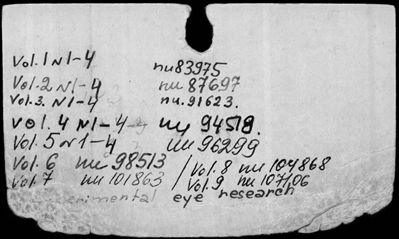 Vol. 1 N1-4 nu83975
Vol. 2 N1-4 nu 87697
Vol. 3. N1-4 nu. 91623.
Vol. 4 N1-4 nu 94519.
Vol. 5 N1-4 nu 96299
Vol. 6 nu 98513 / Vol. 8 nu 104868
Vol. 7 nu 101863 / Vol. 9 nu 107106
experimental eye research